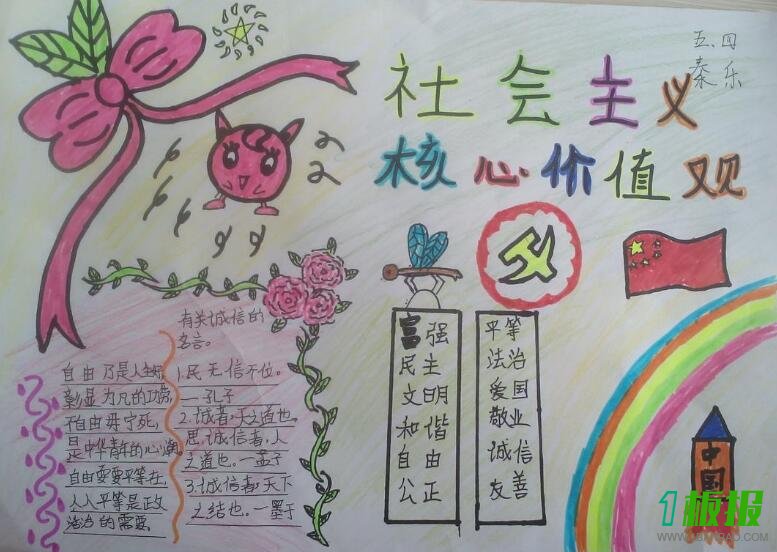 五.四
秦乐
社会主义
核心价值观
有关诚信的
名言。
1.民无信不位。
—孔子
2.诚者,天之道也。
思诚信者,人
之道也。—孟子
3.诚信者,天下
之结也。—墨于
自由乃是人生
彰显为凡的功
自由毋宁死,
是中华青年的心
自由要平等在,
人人平等是政
治的需要
富强
民主
文明
和谐
自由
公正
平等
法治
爱国
敬业
诚信
友善
中国
1板报